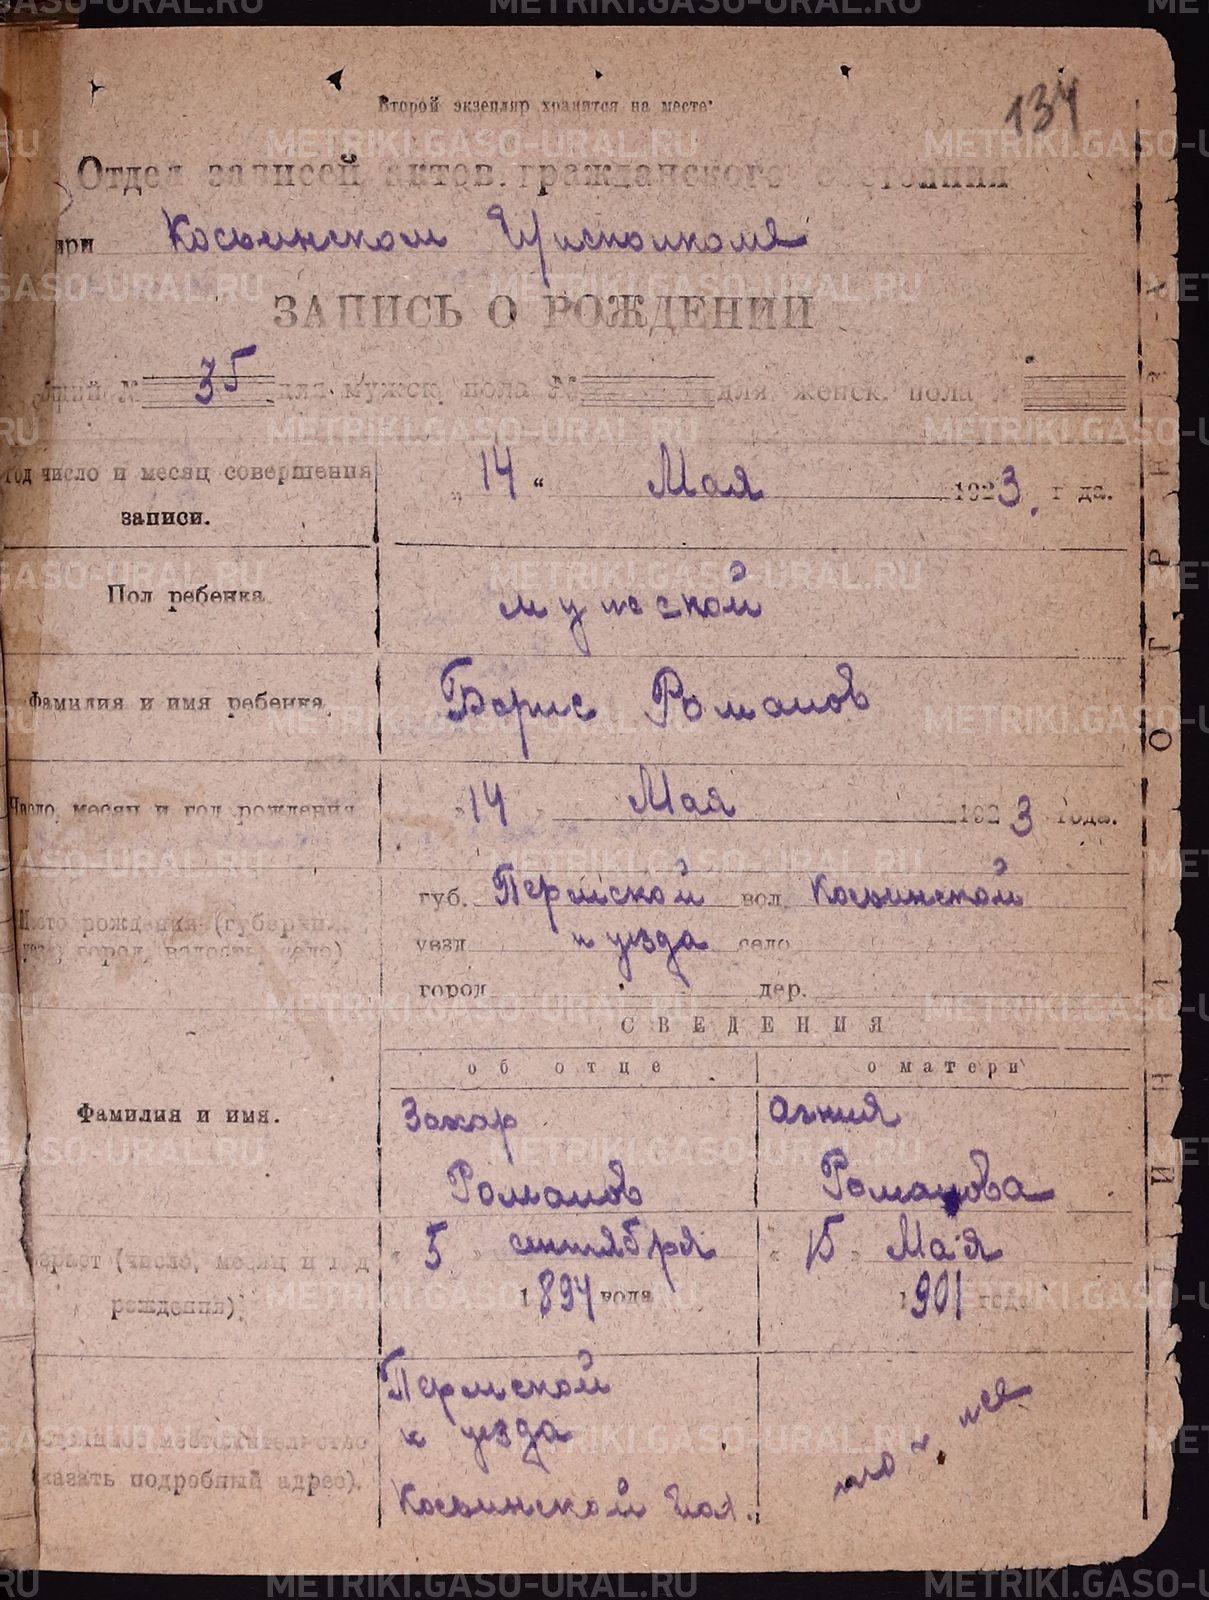 134
Второй экзепляр хранится на месте
Отдел записей актов гражданского состояния
при Косьинском Исполкоме
ЗАПИСЬ О РОЖДЕНИИ
№ 35 для мужск. пола № для женск. пола
Год число и месяц совершения „ 14 “ Мая 1923. года.
записи.
Пол ребенка мужской
Фамилия и имя ребенка Борис Романов
Число, месяц и год рождения „14 Мая 1923 года.
Место рождения (губерния, губ. Пермской вол. Косьинской
город, волость, село) уезд к уезда село
город дер.
СВЕДЕНИЯ
об отце о матери
Фамилия и имя. Захар Агния
Романов Романова
Возраст (число, месяц и год „ 5 „ сентября „ 15 „ Мая
рождения) 1894 года 1901 года
Пермской
местожительство к уезда
указать подробный адрес). Косьинской
ОТРЫВНАЯ
METRIKI.GASO-URAL.RU